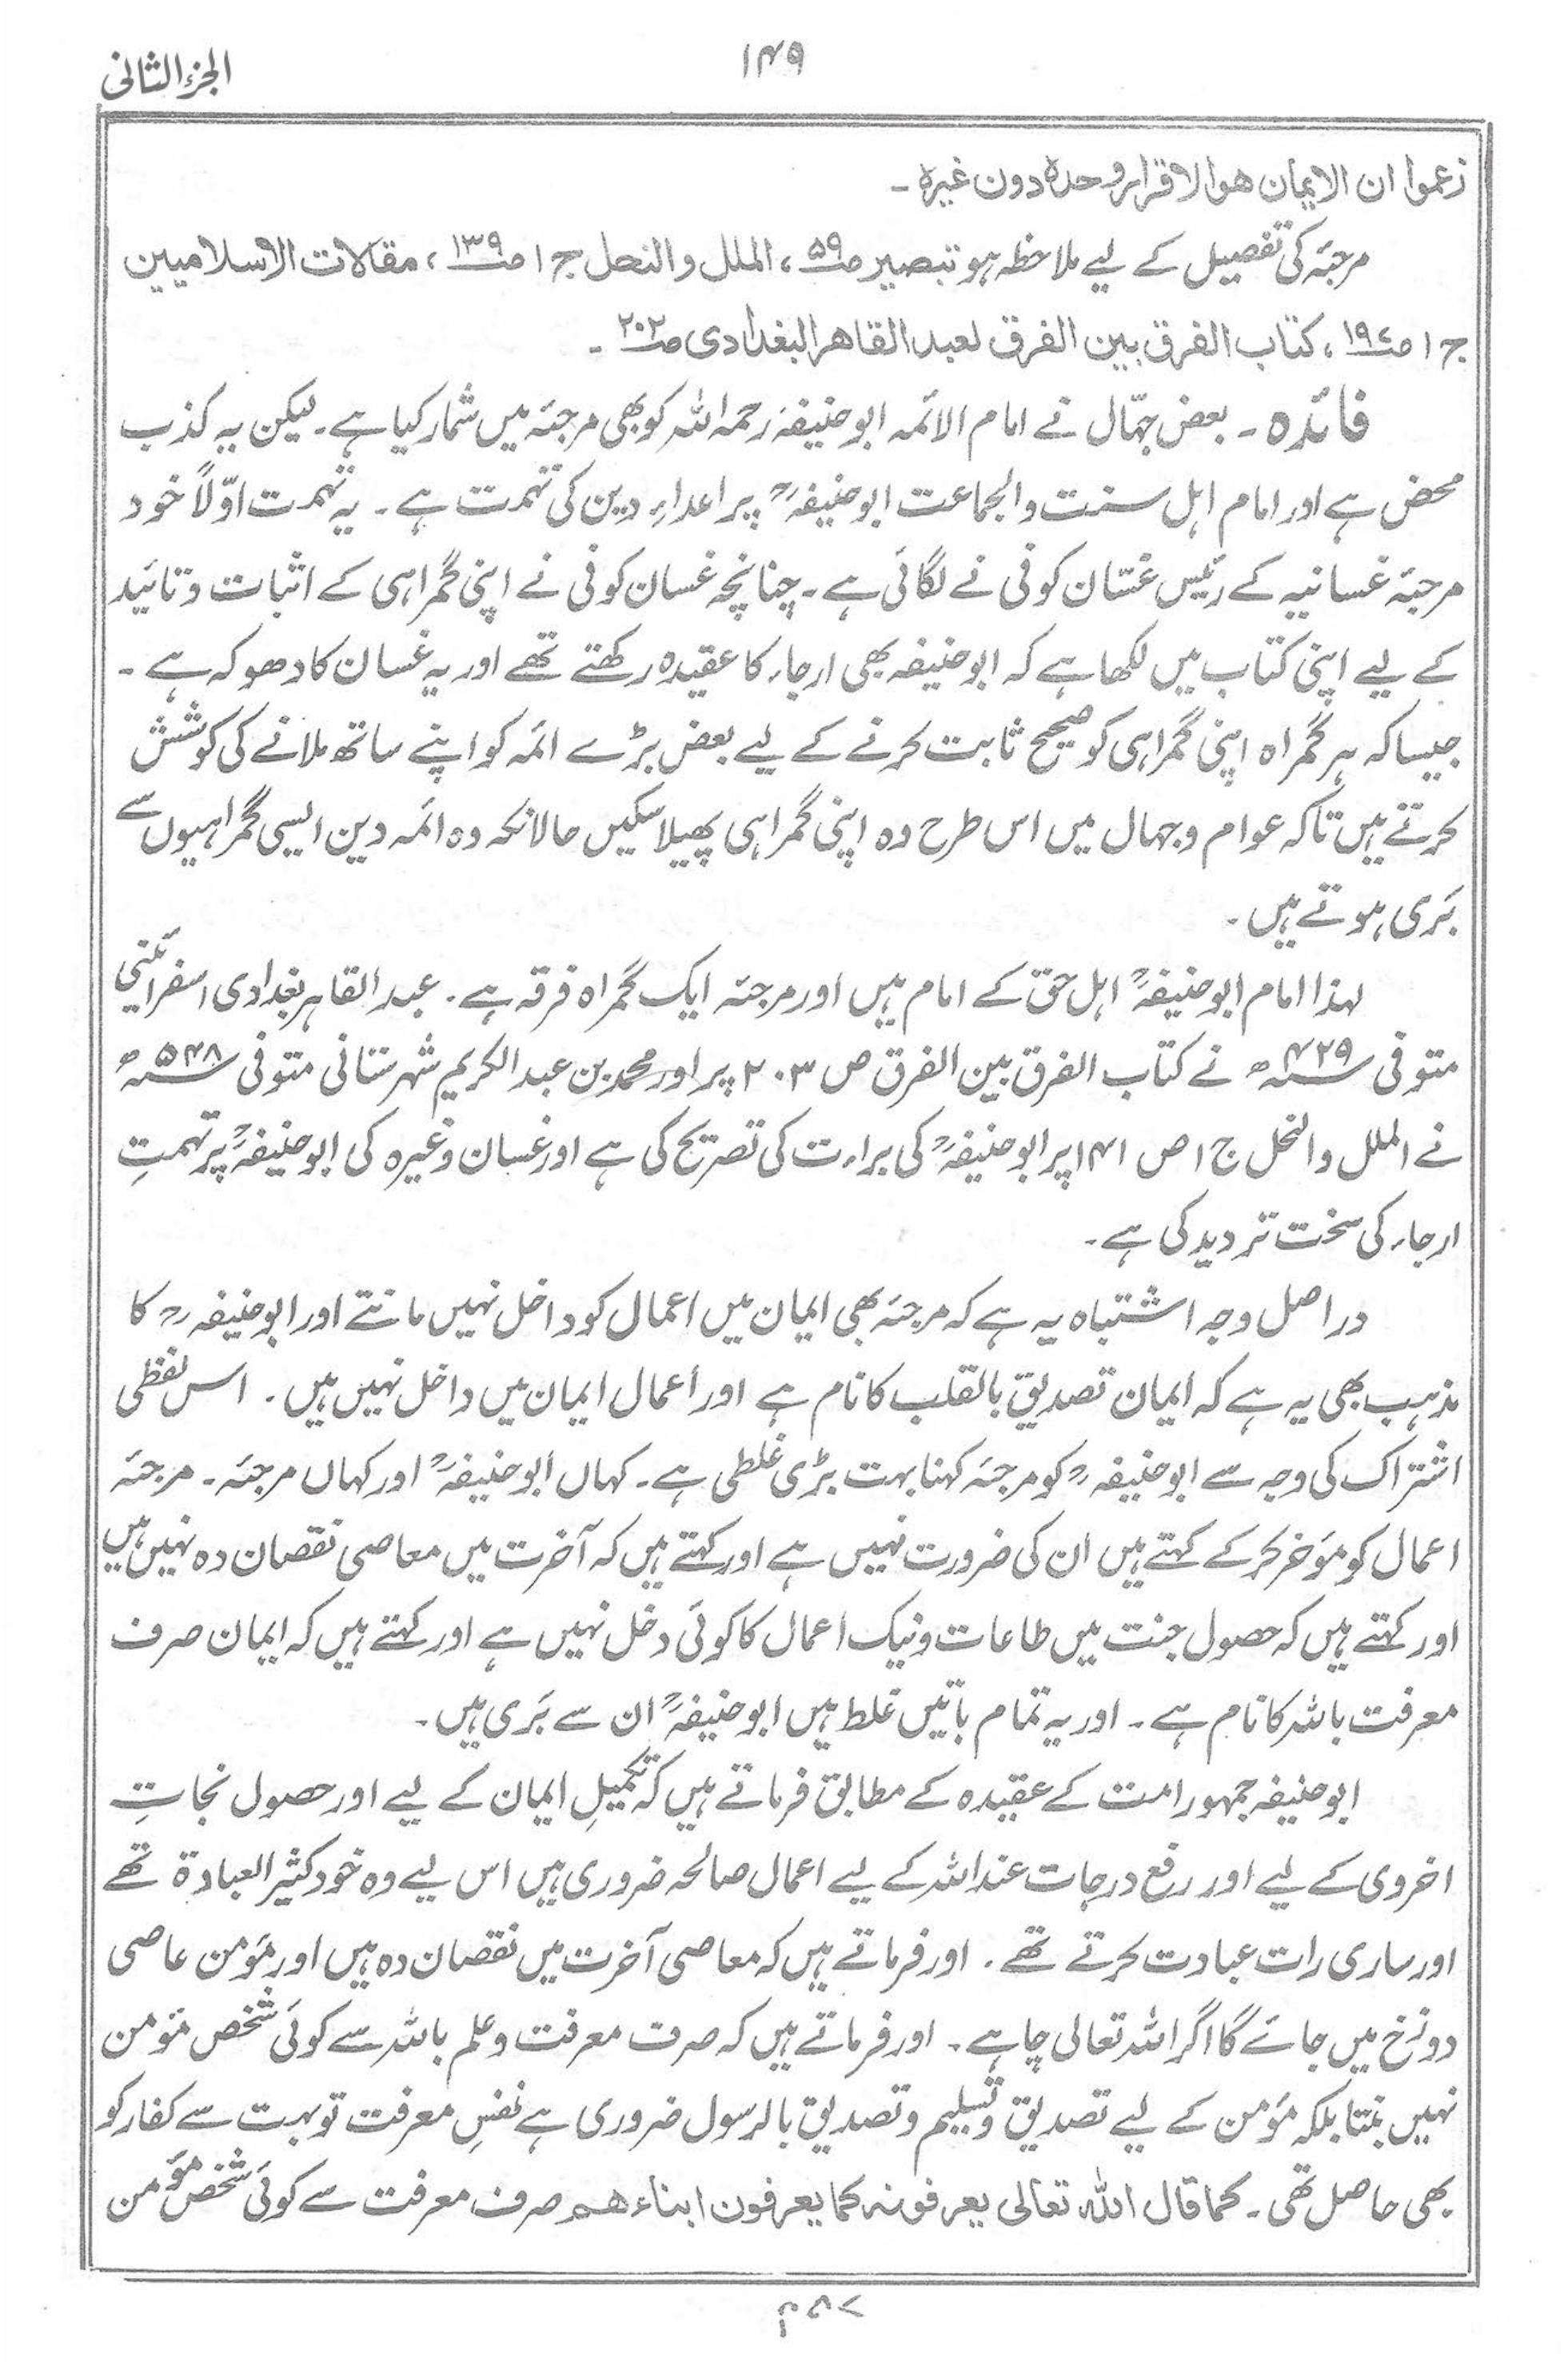 الجزء الثانی
۱۴۹
زعموا ان الایمان هو الاقرار وحده دون غیره ۔
مرجئہ کی تفصیل کے لیے ملاحظہ ہو تبصیر ص۵۹ ، الملل والنحل ج ۱ ص۱۳۹ ، مقالات الاسلامیین
ج ۱ ص۱۹۷ ، کتاب الفرق بین الفرق لعبد القاهر البغدادی ص۲۰۲ ۔
فائدہ ۔ بعض جہّال نے امام الائمہ ابو حنیفہ رحمہ اللہ کو بھی مرجئہ میں شمار کیا ہے ۔ لیکن یہ کذب
محض ہے اور امام اہل سنت والجماعت ابو حنیفہؒ پر اعداءِ دین کی تہمت ہے ۔ یہ تہمت اوّلاً خود
مرجئہ غسانیہ کے رئیس غسّان کوفی نے لگائی ہے ۔ چنانچہ غسان کوفی نے اپنی گمراہی کے اثبات و تائید
کے لیے اپنی کتاب میں لکھا ہے کہ ابو حنیفہ بھی ارجاء کا عقیدہ رکھتے تھے اور یہ غسان کا دھوکہ ہے ۔
جیسا کہ ہر گمراہ اپنی گمراہی کو صحیح ثابت کرنے کے لیے بعض بڑے ائمہ کو اپنے ساتھ ملانے کی کوشش
کرتے ہیں تاکہ عوام و جہال میں اس طرح وہ اپنی گمراہی پھیلا سکیں حالانکہ وہ ائمہ دین ایسی گمراہیوں سے
بَری ہوتے ہیں ۔
لہذا امام ابو حنیفہؒ اہل حق کے امام ہیں اور مرجئہ ایک گمراہ فرقہ ہے ۔ عبد القاہر بغدادی اسفرائینی
متوفی ۴۲۹ھ نے کتاب الفرق بین الفرق ص ۲۰۳ پر اور محمد بن عبد الکریم شہرستانی متوفی ۵۴۸ھ
نے الملل والنحل ج ۱ ص ۱۴۱ پر ابو حنیفہؒ کی براءت کی تصریح کی ہے اور غسان وغیرہ کی ابو حنیفہؒ پر تہمتِ
ارجاء کی سخت تردید کی ہے ۔
در اصل وجہ اشتباہ یہ ہے کہ مرجئہ بھی ایمان میں اعمال کو داخل نہیں مانتے اور ابو حنیفہؒ کا
مذہب بھی یہ ہے کہ ایمان تصدیق بالقلب کا نام ہے اور اعمال ایمان میں داخل نہیں ہیں ۔ اس لفظی
اشتراک کی وجہ سے ابو حنیفہؒ کو مرجئہ کہنا بہت بڑی غلطی ہے ۔ کہاں ابو حنیفہؒ اور کہاں مرجئہ ۔ مرجئہ
اعمال کو مؤخر کر کے کہتے ہیں ان کی ضرورت نہیں ہے اور کہتے ہیں کہ آخرت میں معاصی نقصان دہ نہیں ہیں
اور کہتے ہیں کہ حصول جنت میں طاعات و نیک اعمال کا کوئی دخل نہیں ہے اور کہتے ہیں کہ ایمان صرف
معرفت باللہ کا نام ہے ۔ اور یہ تمام باتیں غلط ہیں ابو حنیفہؒ ان سے بَری ہیں ۔
ابو حنیفہ جمہور امت کے عقیدہ کے مطابق فرماتے ہیں کہ تکمیلِ ایمان کے لیے اور حصول نجاتِ
اخروی کے لیے اور رفع درجات عند اللہ کے لیے اعمال صالحہ ضروری ہیں اس لیے وہ خود کثیر العبادة تھے
اور ساری رات عبادت کرتے تھے ۔ اور فرماتے ہیں کہ معاصی آخرت میں نقصان دہ ہیں اور مؤمن عاصی
دوزخ میں جائے گا اگر اللہ تعالی چاہے ۔ اور فرماتے ہیں کہ صرف معرفت و علم باللہ سے کوئی شخص مؤمن
نہیں بنتا بلکہ مؤمن کے لیے تصدیق و تسلیم و تصدیق بالرسول ضروری ہے نفسِ معرفت تو بہت سے کفار کو
بھی حاصل تھی ۔ کما قال اللہ تعالی یعرفونہ کما یعرفون ابناءھم صرف معرفت سے کوئی شخص مؤمن